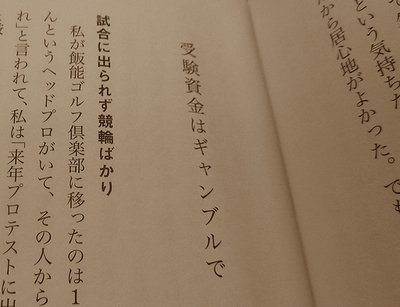 という気持ちだ
から居心地がよかった。でも
受験資金はギャンブルで
試合に出られず競輪ばかり
私が飯能ゴルフ倶楽部に移ったのは1
んというヘッドプロがいて、その人から
れ」と言われて、私は「来年プロテストに出